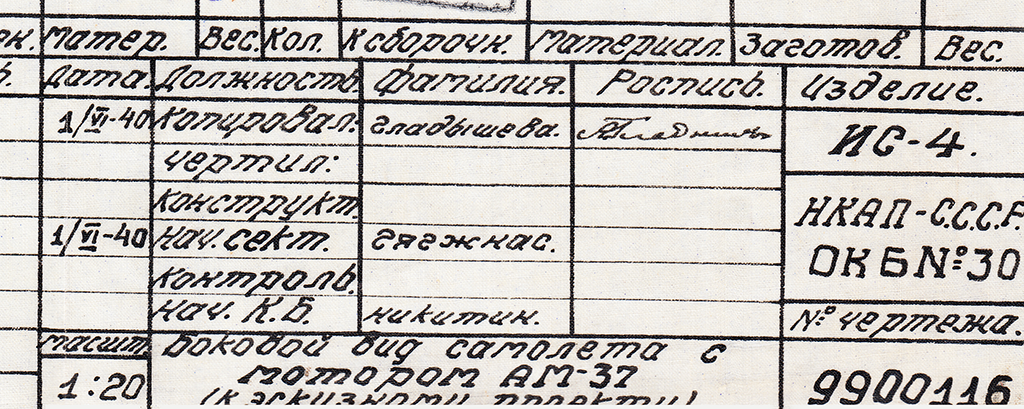 Матер. Вес. Кол. К сборочн. Материал. Заготов. Вес.
Дата. Должность. Фамилия. Роспись. Изделие.
1/VI-40 Копировал: Гладышева. ИС-4.
Чертил:
Конструкт. НКАП-С.С.С.Р.
1/VI-40 Нач. сект. Гягжнас. ОКБ №30
Контроль.
Нач. К.Б. Никитин. № чертежа.
Масшт. Боковой вид самолета с
1:20 мотором АМ-37 9900116
(к эскизному проекту)